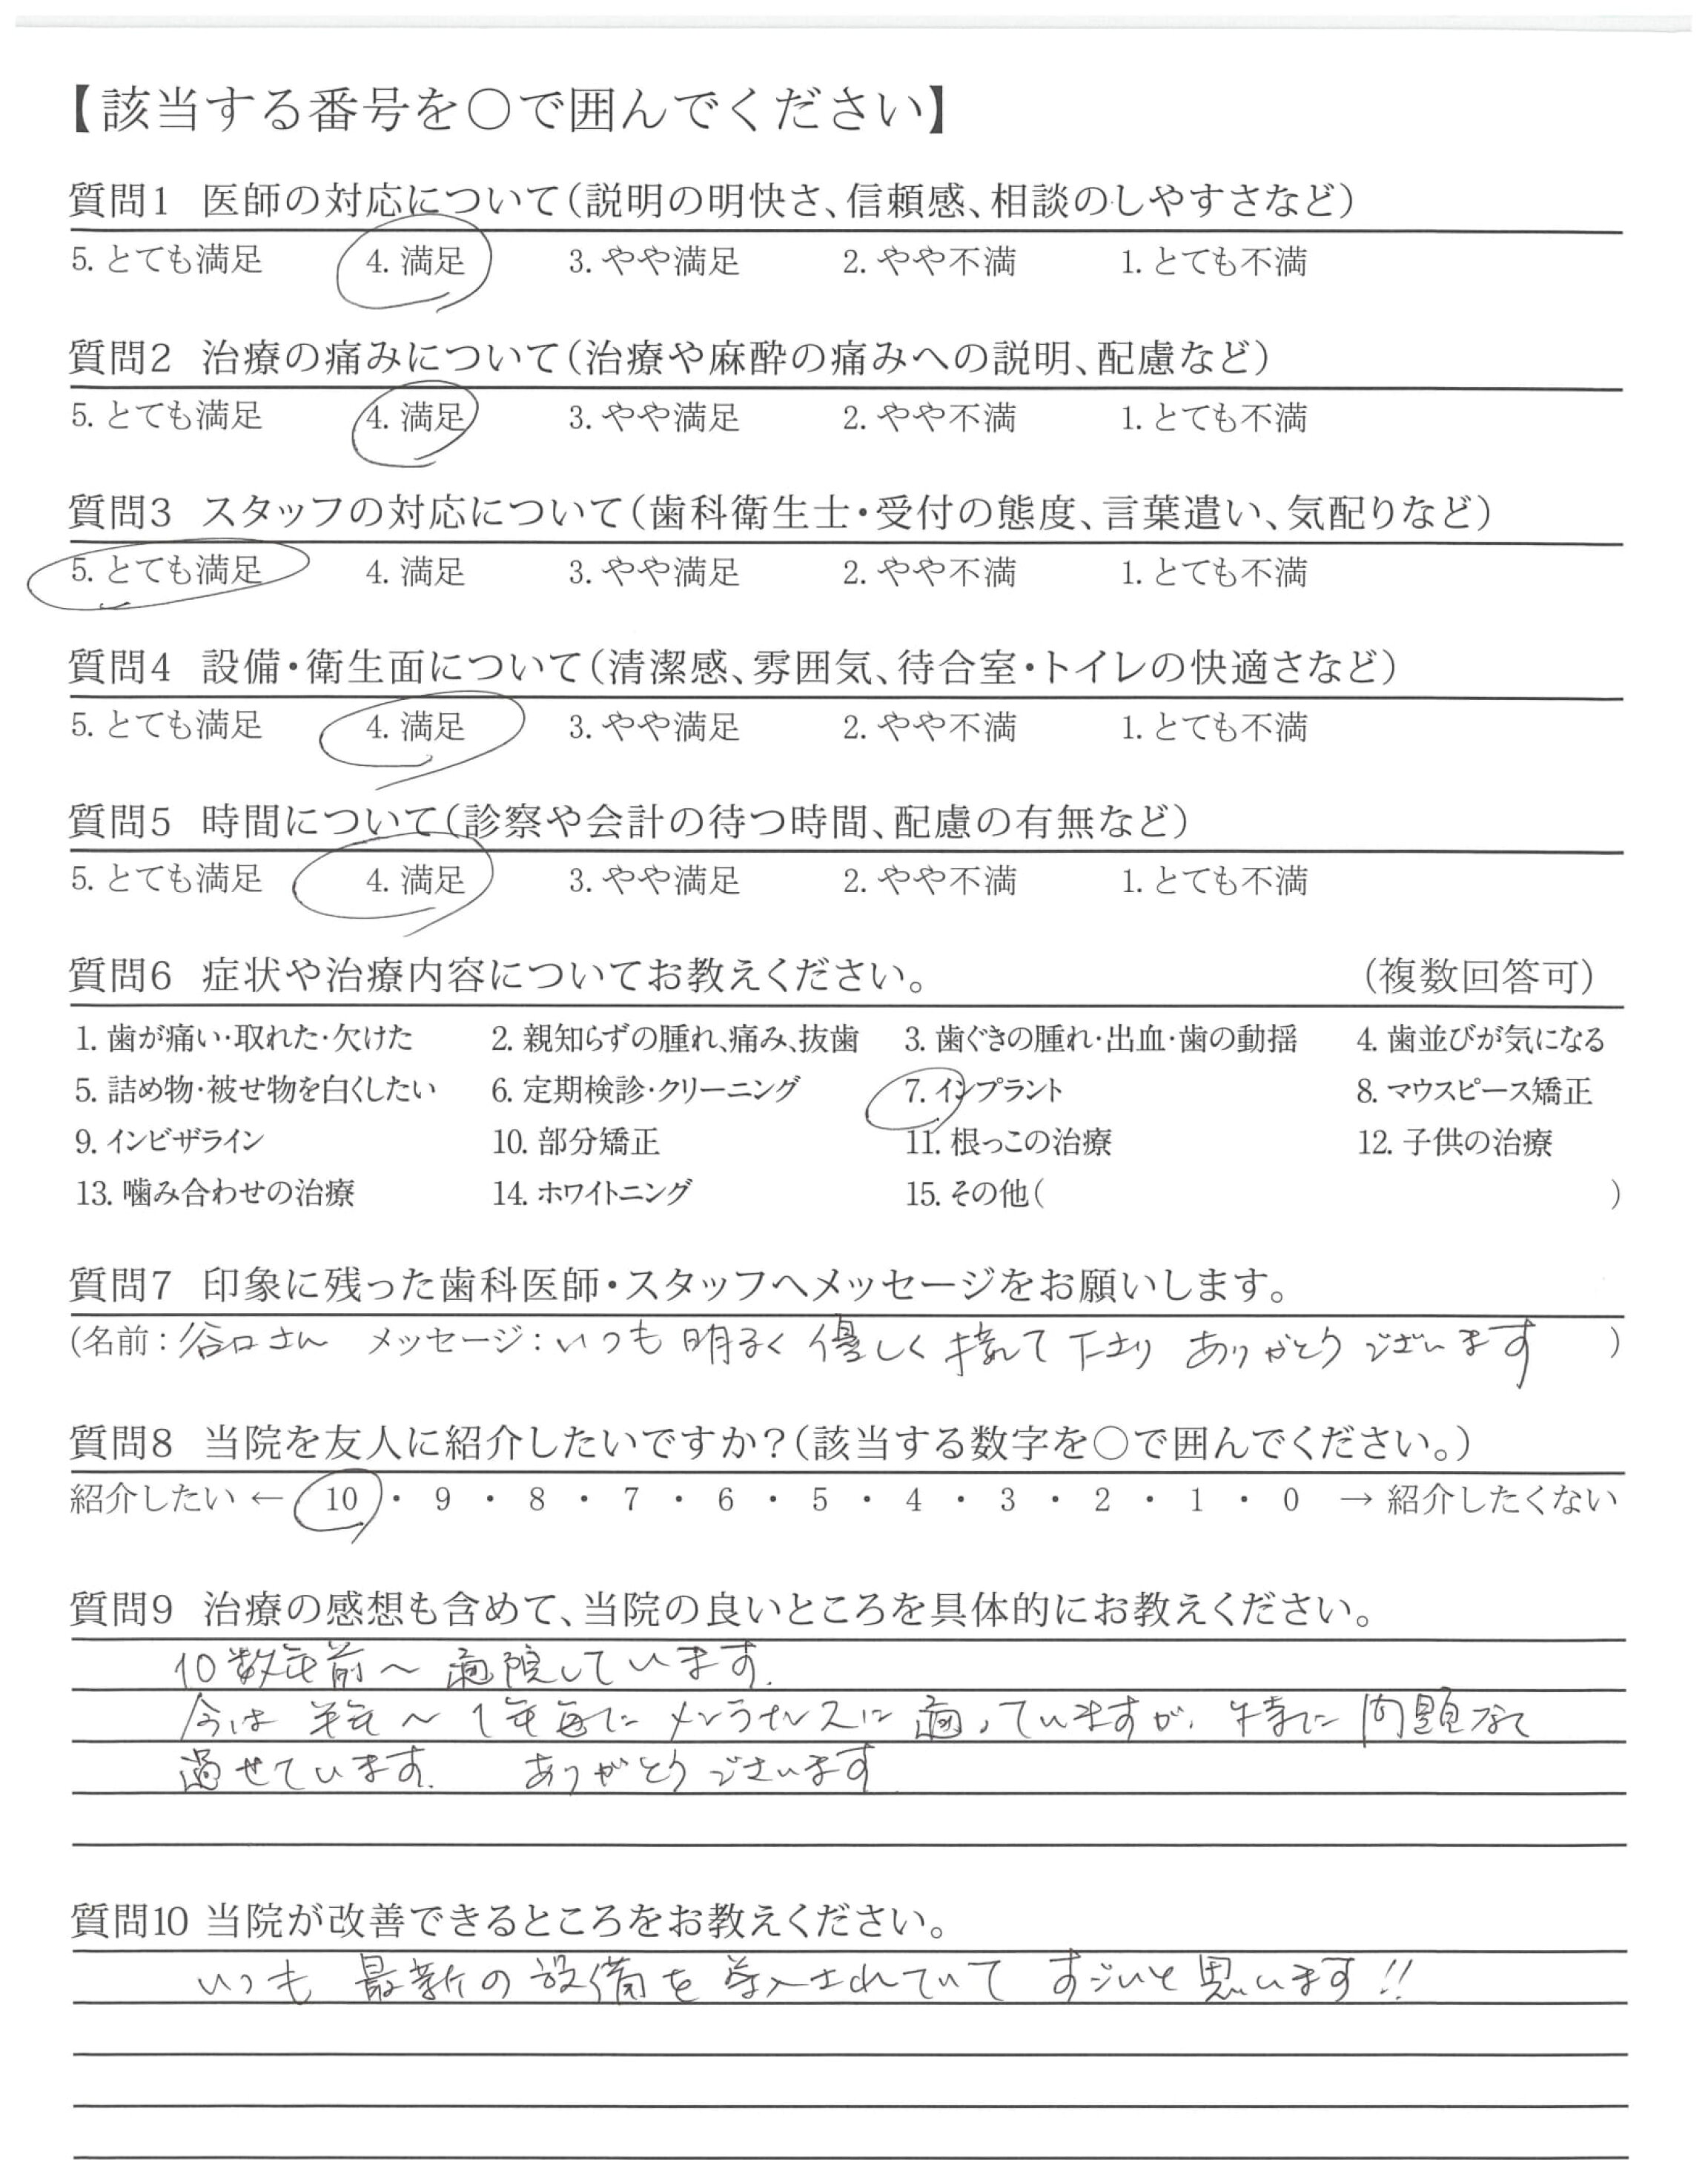 【該当する番号を○で囲んでください】
質問1 医師の対応について（説明の明快さ、信頼感、相談のしやすさなど）
5. とても満足 4. 満足 3. やや満足 2. やや不満 1. とても不満
質問2 治療の痛みについて（治療や麻酔の痛みへの説明、配慮など）
5. とても満足 4. 満足 3. やや満足 2. やや不満 1. とても不満
質問3 スタッフの対応について（歯科衛生士・受付の態度、言葉遣い、気配りなど）
5. とても満足 4. 満足 3. やや満足 2. やや不満 1. とても不満
質問4 設備・衛生面について（清潔感、雰囲気、待合室・トイレの快適さなど）
5. とても満足 4. 満足 3. やや満足 2. やや不満 1. とても不満
質問5 時間について（診察や会計の待つ時間、配慮の有無など）
5. とても満足 4. 満足 3. やや満足 2. やや不満 1. とても不満
質問6 症状や治療内容についてお教えください。 （複数回答可）
1. 歯が痛い・取れた・欠けた 2. 親知らずの腫れ、痛み、抜歯 3. 歯ぐきの腫れ・出血・歯の動揺 4. 歯並びが気になる
5. 詰め物・被せ物を白くしたい 6. 定期検診・クリーニング 7. インプラント 8. マウスピース矯正
9. インビザライン 10. 部分矯正 11. 根っこの治療 12. 子供の治療
13. 噛み合わせの治療 14. ホワイトニング 15. その他（ ）
質問7 印象に残った歯科医師・スタッフへメッセージをお願いします。
（名前：谷口さん メッセージ：いつも明るく優しく接して下さり ありがとうございます ）
質問8 当院を友人に紹介したいですか？（該当する数字を○で囲んでください。）
紹介したい ← 10 ・ 9 ・ 8 ・ 7 ・ 6 ・ 5 ・ 4 ・ 3 ・ 2 ・ 1 ・ 0 → 紹介したくない
質問9 治療の感想も含めて、当院の良いところを具体的にお教えください。
10数年前〜通院しています。
今は半年〜1年毎にメンテナンスに通っていますが、特に問題なく
過せています。 ありがとうございます
質問10 当院が改善できるところをお教えください。
いつも最新の設備を導入されていて すごいと思います!!